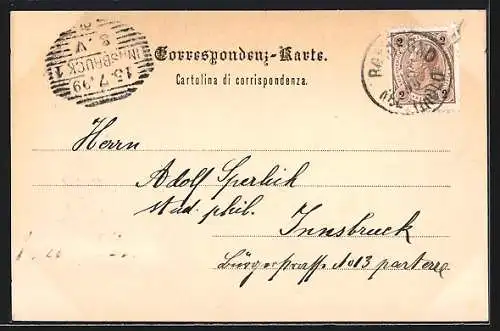 INNSBRUCK 1
15.7.99
8.V
Correspondenz-Karte.
Cartolina di corrispondenza.
2 2
2 2
Herrn
Adolf Sperlich
stud. phil.
Innsbruck
Bürgerstrasse No 13 parterre